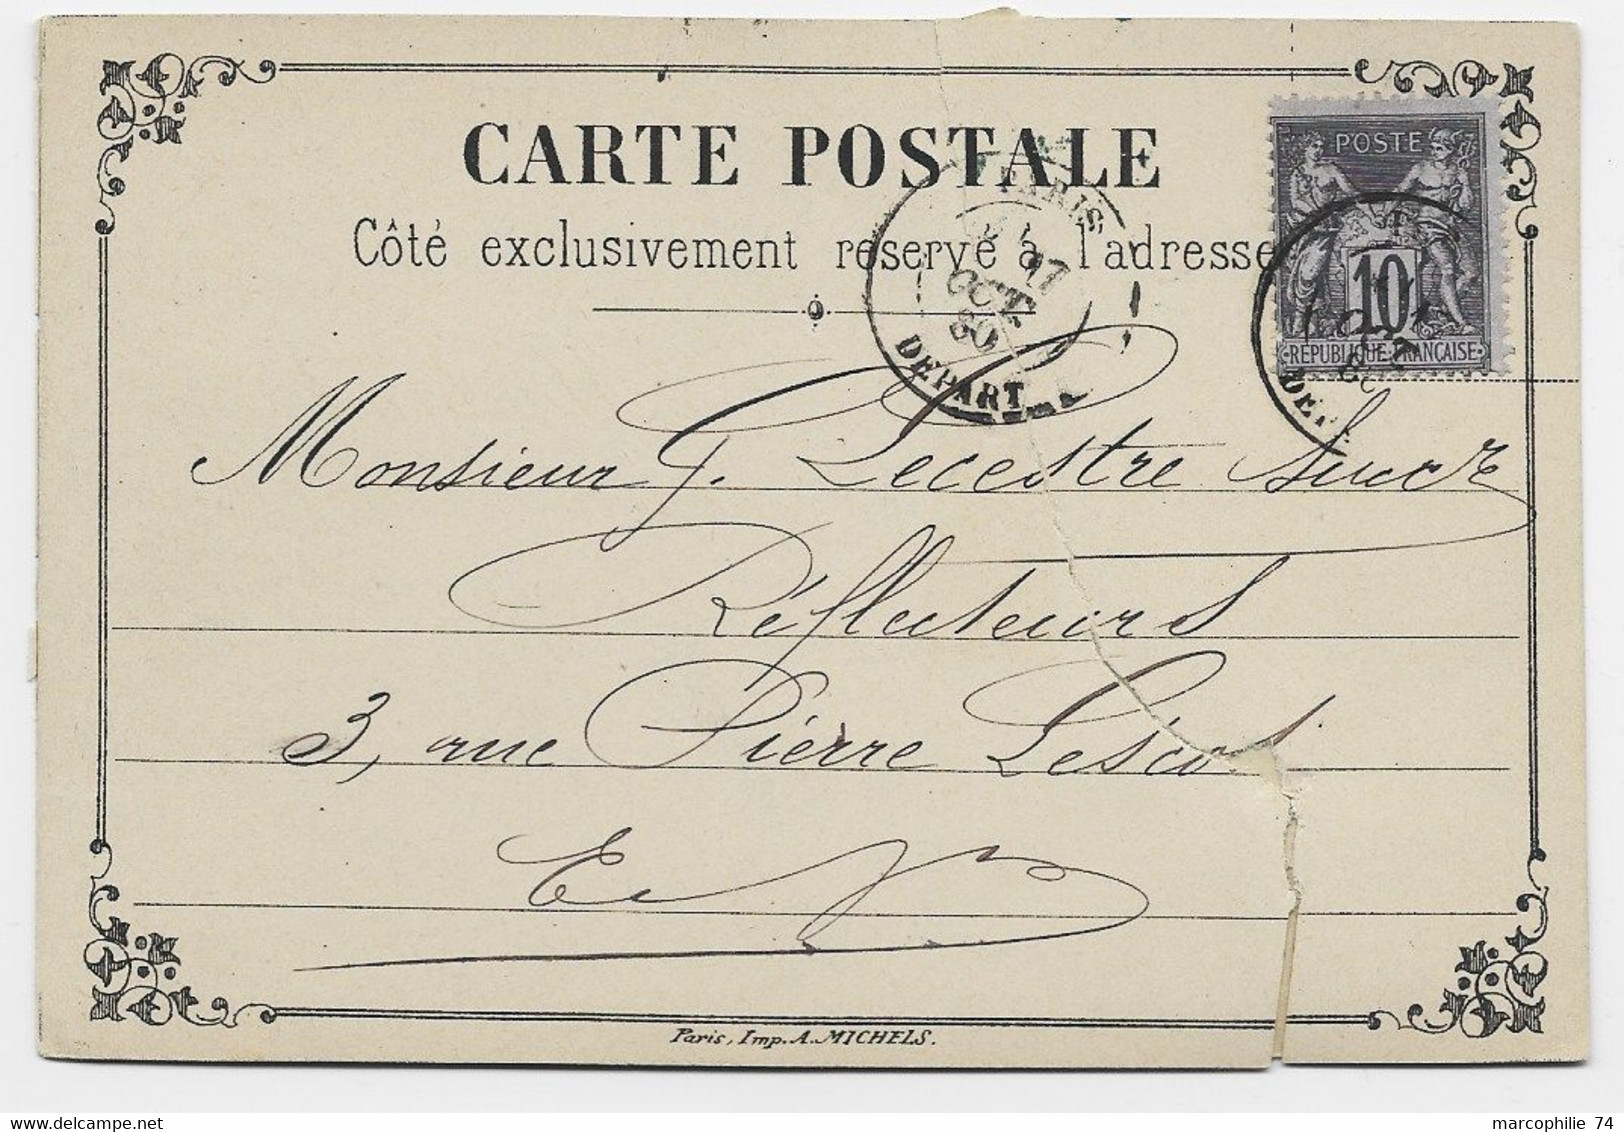 CARTE POSTALE
Côté exclusivement reservé à l'adresse
POSTE
10
RÉPUBLIQUE FRANÇAISE
PARIS
17
OCT.
80
DEPART
Monsieur G. Lecestre Succr
Réflecteurs
3, rue Pierre Lescot
E V
Paris, Imp. A. MICHELS.
marcophilie 74